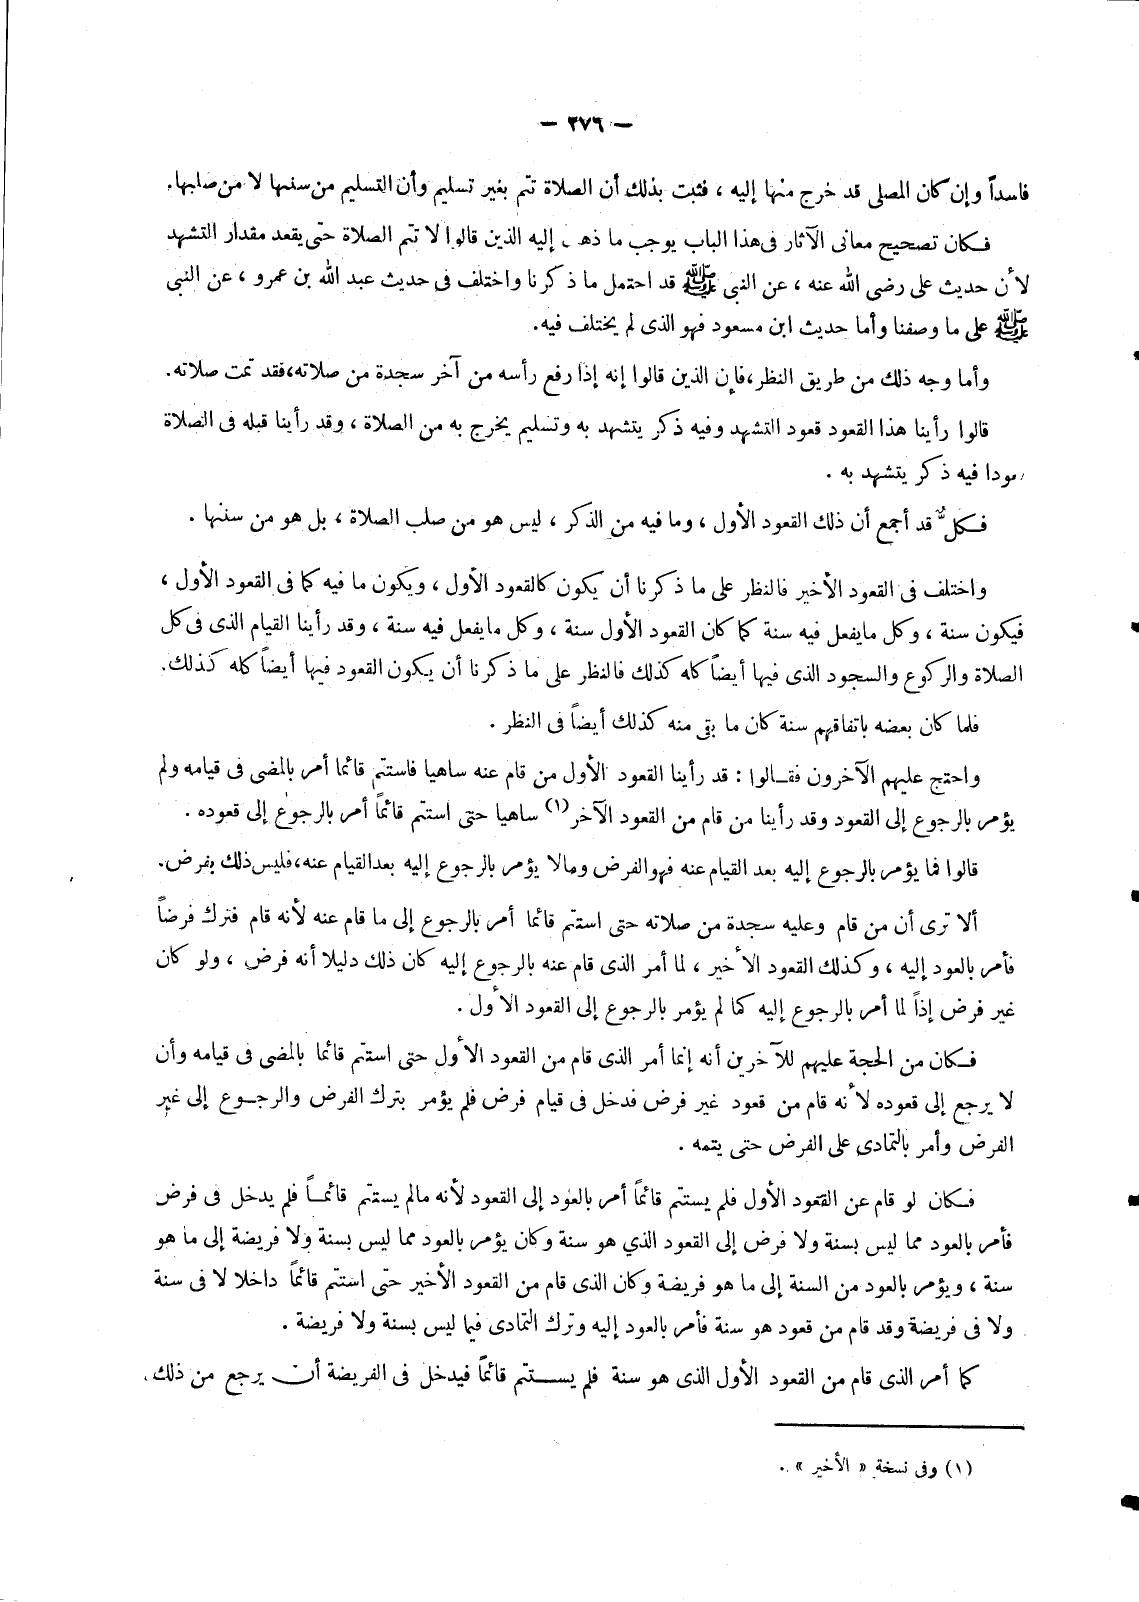 — ٢٧٦ —
فاسداً وإن كان المصلى قد خرج منها إليه ، فثبت بذلك أن الصلاة تتم بغير تسليم وأن التسليم من سننها لا من صلبها.
فكان تصحيح معانى الآثار فى هذا الباب يوجب ما ذهـ إليه الذين قالوا لا تتم الصلاة حتى يقعد مقدار التشهد
لأن حديث على رضى الله عنه ، عن النبى ﷺ قد احتمل ما ذكرنا واختلف فى حديث عبد الله بن عمرو ، عن النبى
ﷺ على ما وصفنا وأما حديث ابن مسعود فهو الذى لم يختلف فيه.
وأما وجه ذلك من طريق النظر،فإن الذين قالوا إنه إذا رفع رأسه من آخر سجدة من صلاته،فقد تمت صلاته.
قالوا رأينا هذا القعود قعود التشهد وفيه ذكر يتشهد به وتسليم يخرج به من الصلاة ، وقد رأينا قبله فى الصلاة
ـودا فيه ذكر يتشهد به .
فكلٌّ قد أجمع أن ذلك القعود الأول ، وما فيه من الذكر ، ليس هو من صلب الصلاة ، بل هو من سننها .
واختلف فى القعود الأخير فالنظر على ما ذكرنا أن يكون كالقعود الأول ، ويكون ما فيه كما فى القعود الأول ،
فيكون سنة ، وكل مايفعل فيه سنة كما كان القعود الأول سنة ، وكل مايفعل فيه سنة ، وقد رأينا القيام الذى فى كل
الصلاة والركوع والسجود الذى فيها أيضاً كله كذلك فالنظر على ما ذكرنا أن يكون القعود فيها أيضاً كله كذلك.
فلما كان بعضه باتفاقهم سنة كان ما بقى منه كذلك أيضاً فى النظر .
واحتج عليهم الآخرون فقالوا : قد رأينا القعود الأول من قام عنه ساهيا فاستتم قائما أمر بالمضى فى قيامه ولم
يؤمر بالرجوع إلى القعود وقد رأينا من قام من القعود الآخر(١) ساهيا حتى استتم قائماً أمر بالرجوع إلى قعوده .
قالوا فما يؤمر بالرجوع إليه بعد القيام عنه فهو الفرض ومالا يؤمر بالرجوع إليه بعد القيام عنه،فليس ذلك بفرض.
ألا ترى أن من قام وعليه سجدة من صلاته حتى استتم قائما أمر بالرجوع إلى ما قام عنه لأنه قام فترك فرضاً
فأمر بالعود إليه ، وكذلك القعود الأخير ، لما أمر الذى قام عنه بالرجوع إليه كان ذلك دليلا أنه فرض ، ولو كان
غير فرض إذاً لما أمر بالرجوع إليه كما لم يؤمر بالرجوع إلى القعود الأول .
فكان من الحجة عليهم للآخرين أنه إنما أمر الذى قام من القعود الأول حتى استتم قائما بالمضى فى قيامه وأن
لا يرجع إلى قعوده لأنه قام من قعود غير فرض فدخل فى قيام فرض فلم يؤمر بترك الفرض والرجوع إلى غير
الفرض وأمر بالتمادى على الفرض حتى يتمه .
فكان لو قام عن القعود الأول فلم يستتم قائماً أمر بالعود إلى القعود لأنه مالم يستتم قائماً فلم يدخل فى فرض
فأمر بالعود مما ليس بسنة ولا فرض إلى القعود الذي هو سنة وكان يؤمر بالعود مما ليس بسنة ولا فريضة إلى ما هو
سنة ، ويؤمر بالعود من السنة إلى ما هو فريضة وكان الذى قام من القعود الأخير حتى استتم قائماً داخلا لا فى سنة
ولا فى فريضة وقد قام من قعود هو سنة فأمر بالعود إليه وترك التمادى فيما ليس بسنة ولا فريضة .
كما أمر الذى قام من القعود الأول الذى هو سنة فلم يستتم قائماً فيدخل فى الفريضة أن يرجع من ذلك .
(١) وفى نسخة « الأخير » .